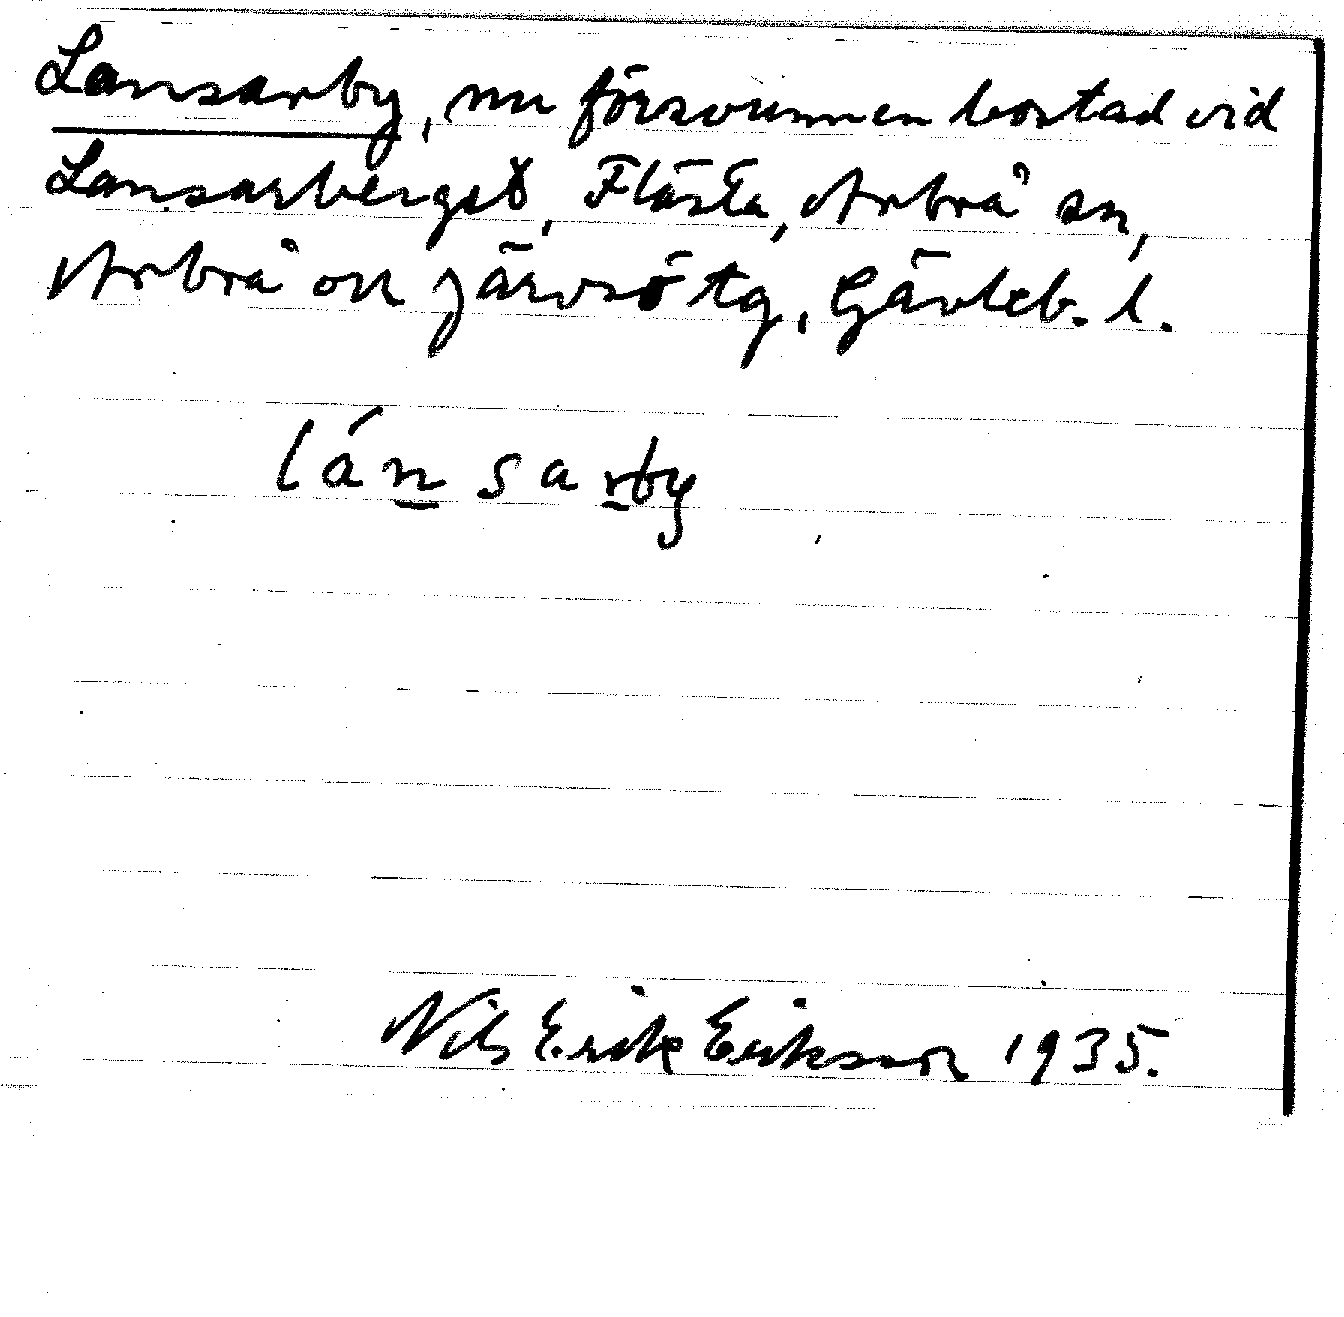 Lansarby, nu försvunnen bostad vid
Lansarberget, Flästa, Arbrå sn,
Arbrå ock Järvsö tg, Gävleb. l.
lánsarby
Nils Erik Eriksson 1935.